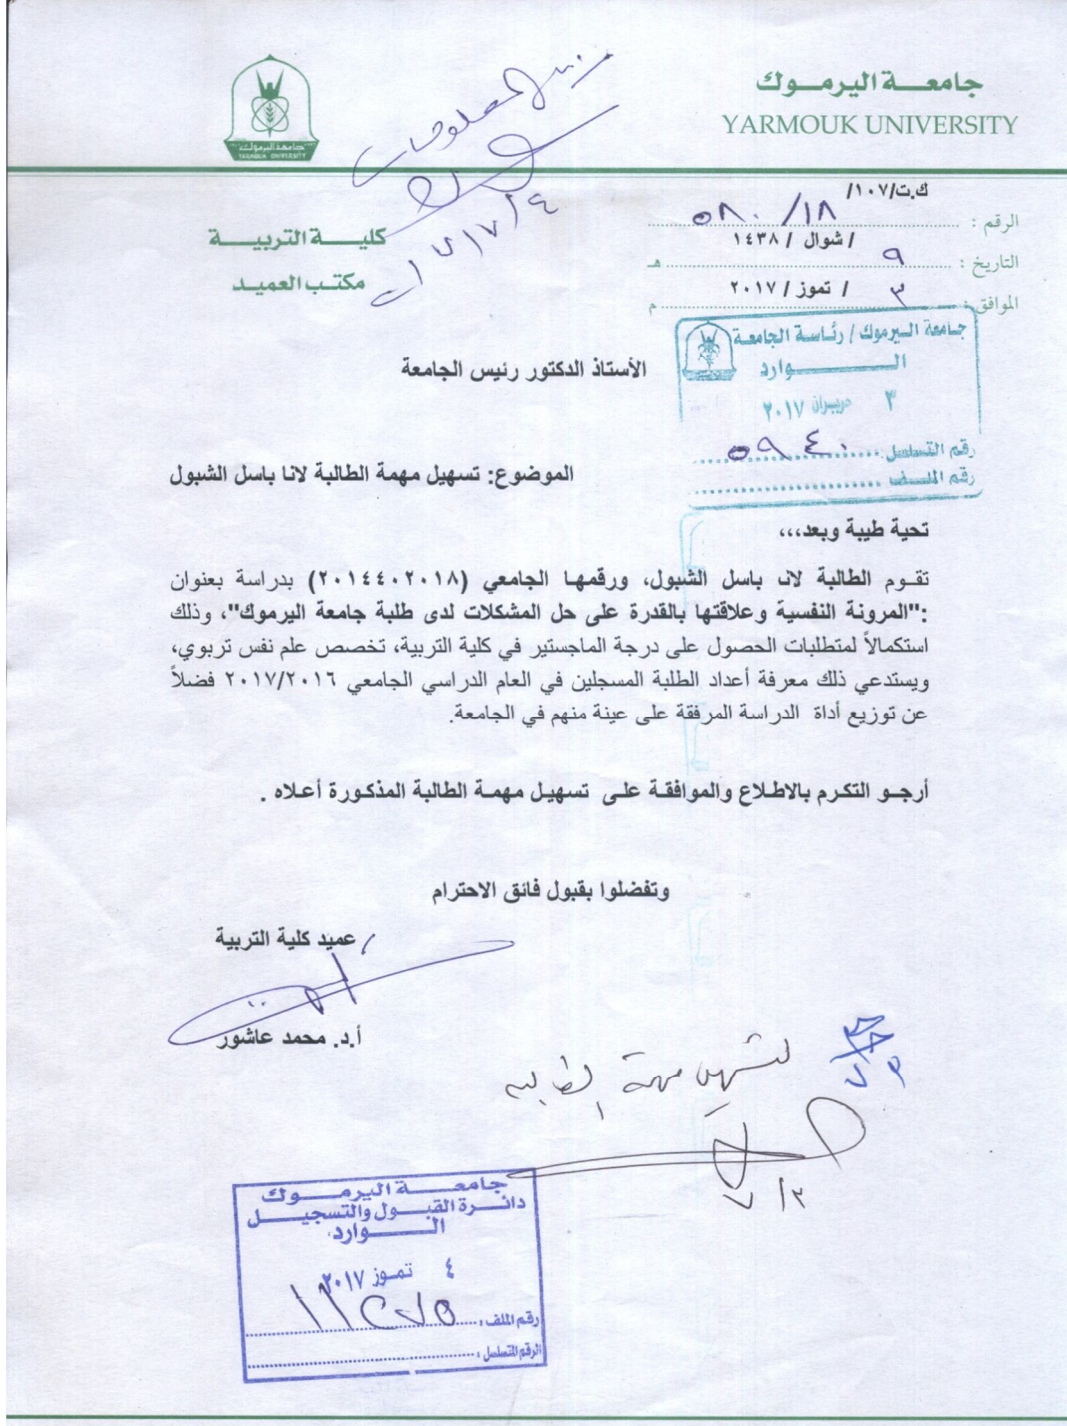 جامعة اليرموك
YARMOUK UNIVERSITY
جامعة اليرموك
YARMOUK UNIVERSITY
كلية التربية
مكتب العميد
ك.ت/١٠٧/
الرقم : ٥٨٠/١٨
التاريخ : ٩ / شوال / ١٤٣٨ هـ
الموافق : ٣ / تموز / ٢٠١٧ م
جامعة اليرموك / رئاسة الجامعة
الوارد
٣ حزيران ٢٠١٧
رقم التسلسل ٥٩٤٠
رقم الملف
الأستاذ الدكتور رئيس الجامعة
الموضوع: تسهيل مهمة الطالبة لانا باسل الشبول
تحية طيبة وبعد،،،
تقوم الطالبة لانا باسل الشبول، ورقمها الجامعي (٢٠١٤٤٠٢٠١٨) بدراسة بعنوان
:"المرونة النفسية وعلاقتها بالقدرة على حل المشكلات لدى طلبة جامعة اليرموك"، وذلك
استكمالاً لمتطلبات الحصول على درجة الماجستير في كلية التربية، تخصص علم نفس تربوي،
ويستدعي ذلك معرفة أعداد الطلبة المسجلين في العام الدراسي الجامعي ٢٠١٧/٢٠١٦ فضلاً
عن توزيع أداة الدراسة المرفقة على عينة منهم في الجامعة.
أرجو التكرم بالاطلاع والموافقة على تسهيل مهمة الطالبة المذكورة أعلاه .
وتفضلوا بقبول فائق الاحترام
عميد كلية التربية
أ.د. محمد عاشور
لتسهيل مهمة الطالبة
٧/٣
جامعة اليرموك
دائرة القبول والتسجيل
الوارد
٤ تموز ٢٠١٧
رقم الملف :
الرقم المتسلسل :